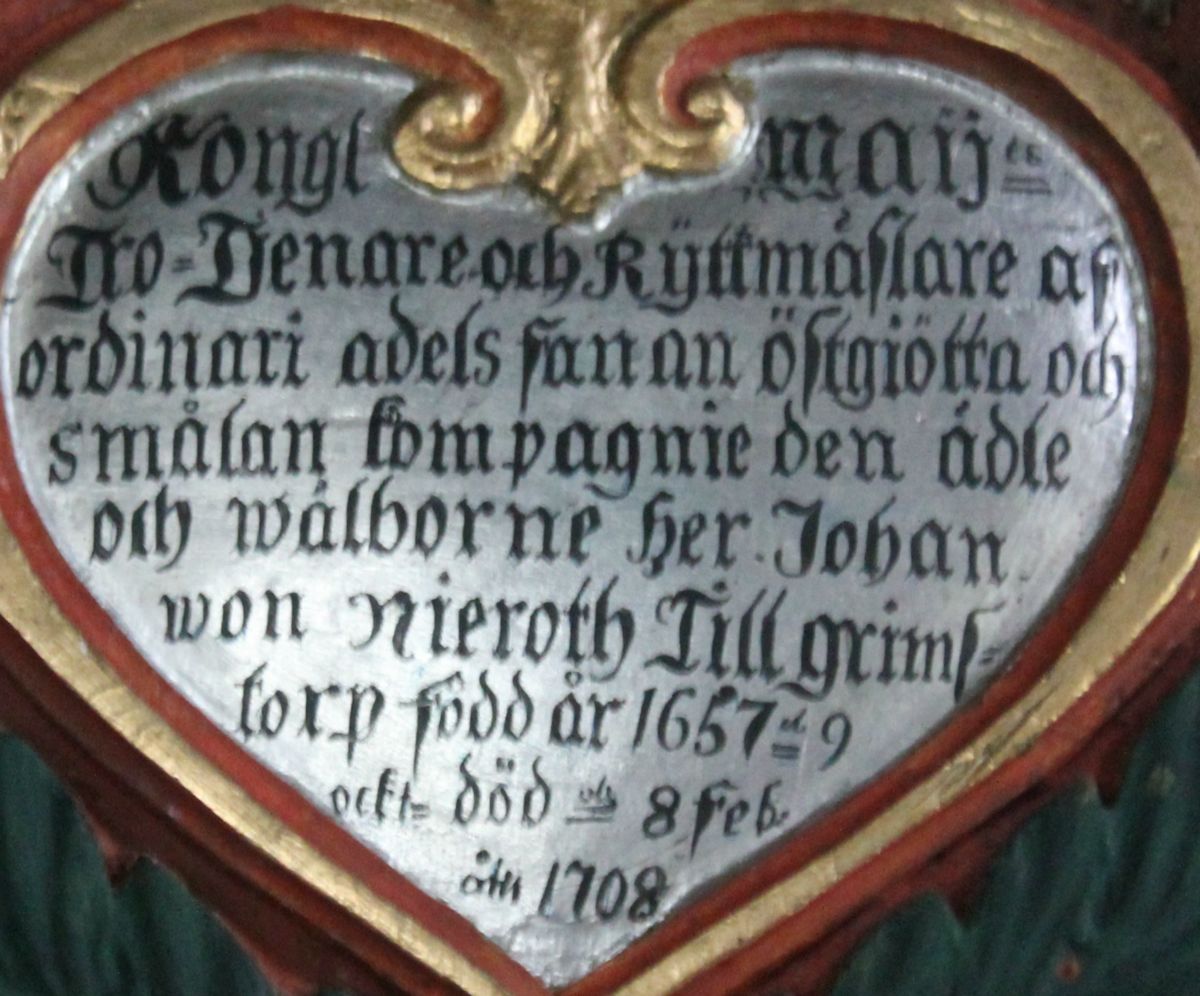 Kongl Maij=ts
Tro=Tienare och Rÿttmästare af
ordinari adels fanan östgiötta och
smålan kompagnie den ädle
och wälborne her Johan
von Nieroth Till grims=
torp född år 1657 = 9
ockt= död = 8 Feb.
åhr 1708